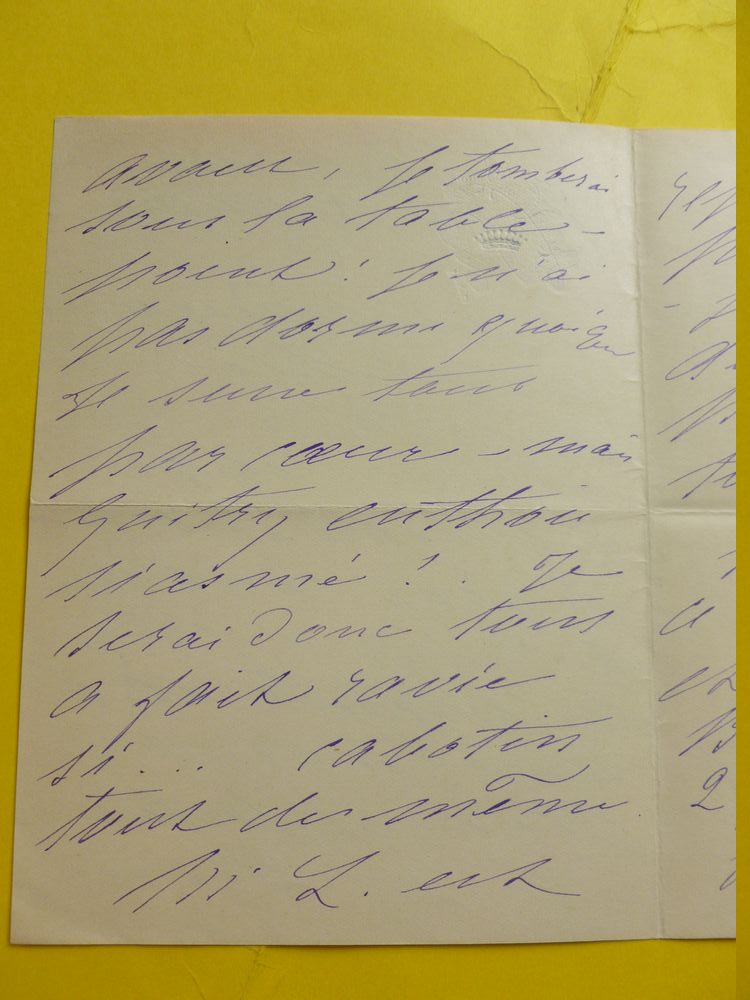 avant, je tomberai
sous la table -
point ! je n'ai
pas dormi quoique
Je
par cœur - mais
Guitry enthou
siasmé ! . Je
serai donc tout
a fait ravie
si... cabotin
tout de même.
Si L. est
2